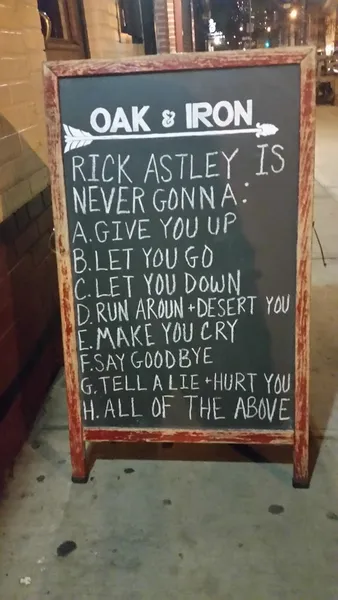 OAK & IRON
RICK ASTLEY IS
NEVER GONNA:
A. GIVE YOU UP
B. LET YOU GO
C. LET YOU DOWN
D. RUN AROUN + DESERT YOU
E. MAKE YOU CRY
F. SAY GOODBYE
G. TELL A LIE + HURT YOU
H. ALL OF THE ABOVE